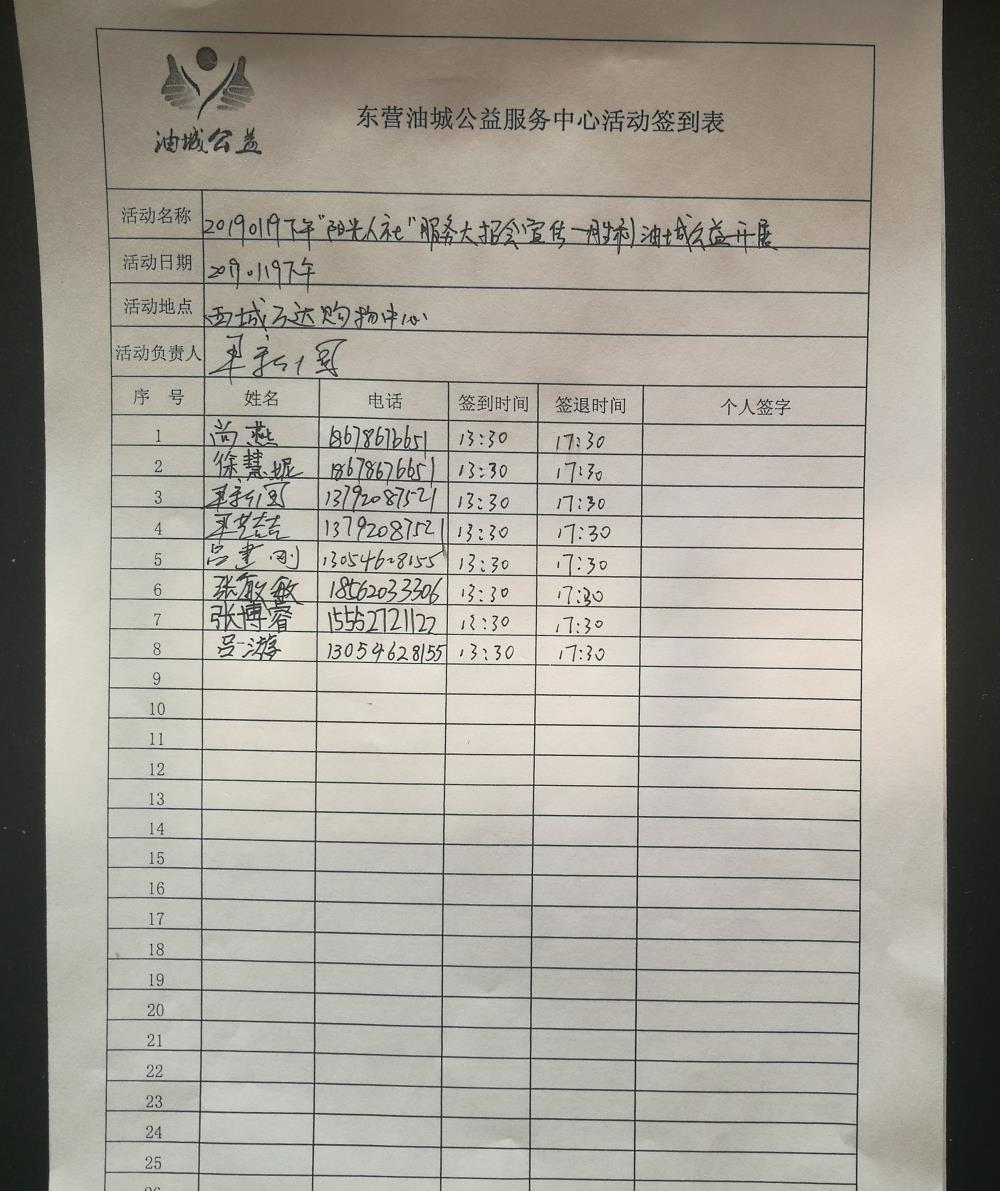 油城公益
东营油城公益服务中心活动签到表
活动名称 20190119下午"阳光人社"服务大招会宣传一胜利油城公益开展
活动日期 20190119下午
活动地点 西城万达购物中心
活动负责人
序 号 姓名 电话 签到时间 签退时间 个人签字
1 尚燕 18678676651 13:30 17:30
2 徐慧妮 18678676651 13:30 17:30
3 13792087521 13:30 17:30
4 13792087521 13:30 17:30
5 吕建刚 13054628155 13:30 17:30
6 张敏敏 18562033306 13:30 17:30
7 张博睿 15552721122 13:30 17:30
8 吕游 13054628155 13:30 17:30
9
10
11
12
13
14
15
16
17
18
19
20
21
22
23
24
25